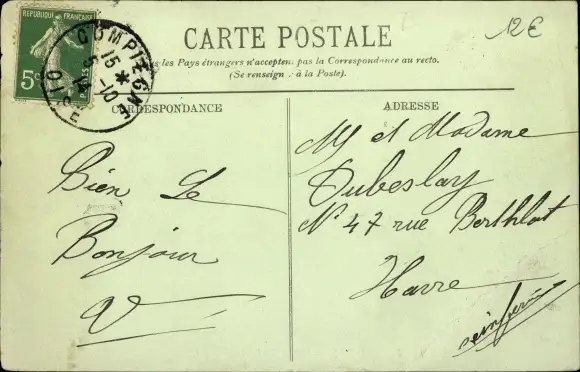 REPUBLIQUE FRANÇAISE
5c
POSTES
COMPIÈGNE
15 *
5 - 10
OISE
12€
CARTE POSTALE
les Pays étrangers n'acceptent pas la Correspondance au recto.
(Se renseigner à la Poste).
CORRESPONDANCE
Bien Le
Bonjour
V
ADRESSE
M et Madame
Dubeslay
N° 47 rue Berthlot
Havre